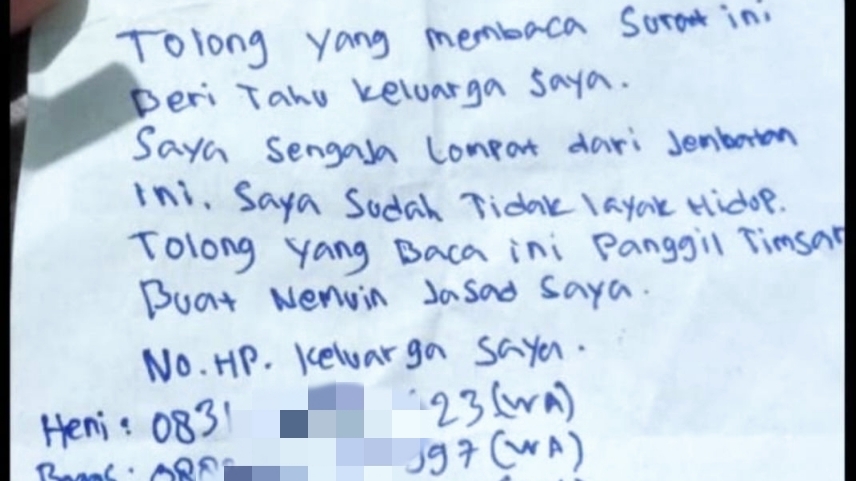 Tolong yang membaca Surat ini
Beri Tahu keluarga saya.
Saya Sengaja Lompat dari Jembatan
ini. Saya Sudah Tidak layak Hidup.
Tolong yang Baca ini Panggil Timsar
Buat Nemuin Jasad saya.
No. HP. keluarga saya.
Heni : 0831 23 (WA)
97 (WA)